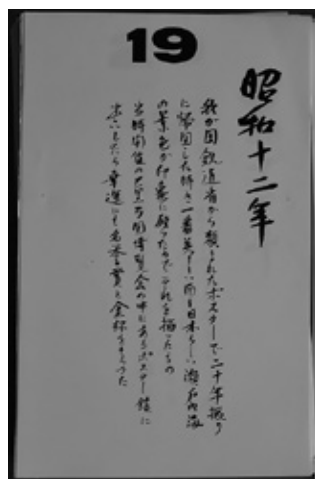 19
昭和十二年
我が国鉄道省から頼まれたポスターで二十年振り
に帰国した時き一番美しい而も日本らしい瀬戸内海
の景色が印象に残ったのでこれを描いたもの
当時開催の巴里万国博覧会の中にあるポスター館に
出いたら幸運にも名誉賞と金杯をもらった